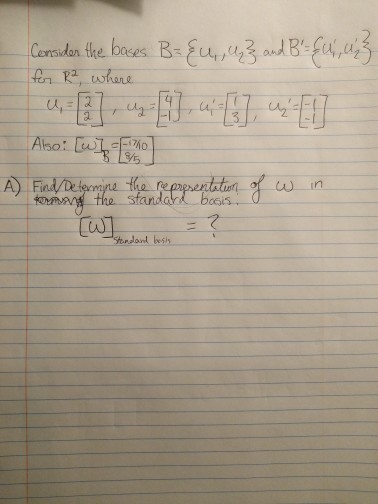 Consider the bases B = {u₁, u₂} and B' = {u₁', u₂'}
for R², where
u₁ = [2 2], u₂ = [4 -1], u₁' = [1 3], u₂' = [-1 -1]
Also: [w]_B = [-17/10 8/5]
A) Find/Determine the representation of w in
the standard basis.
[w] standard basis = ?